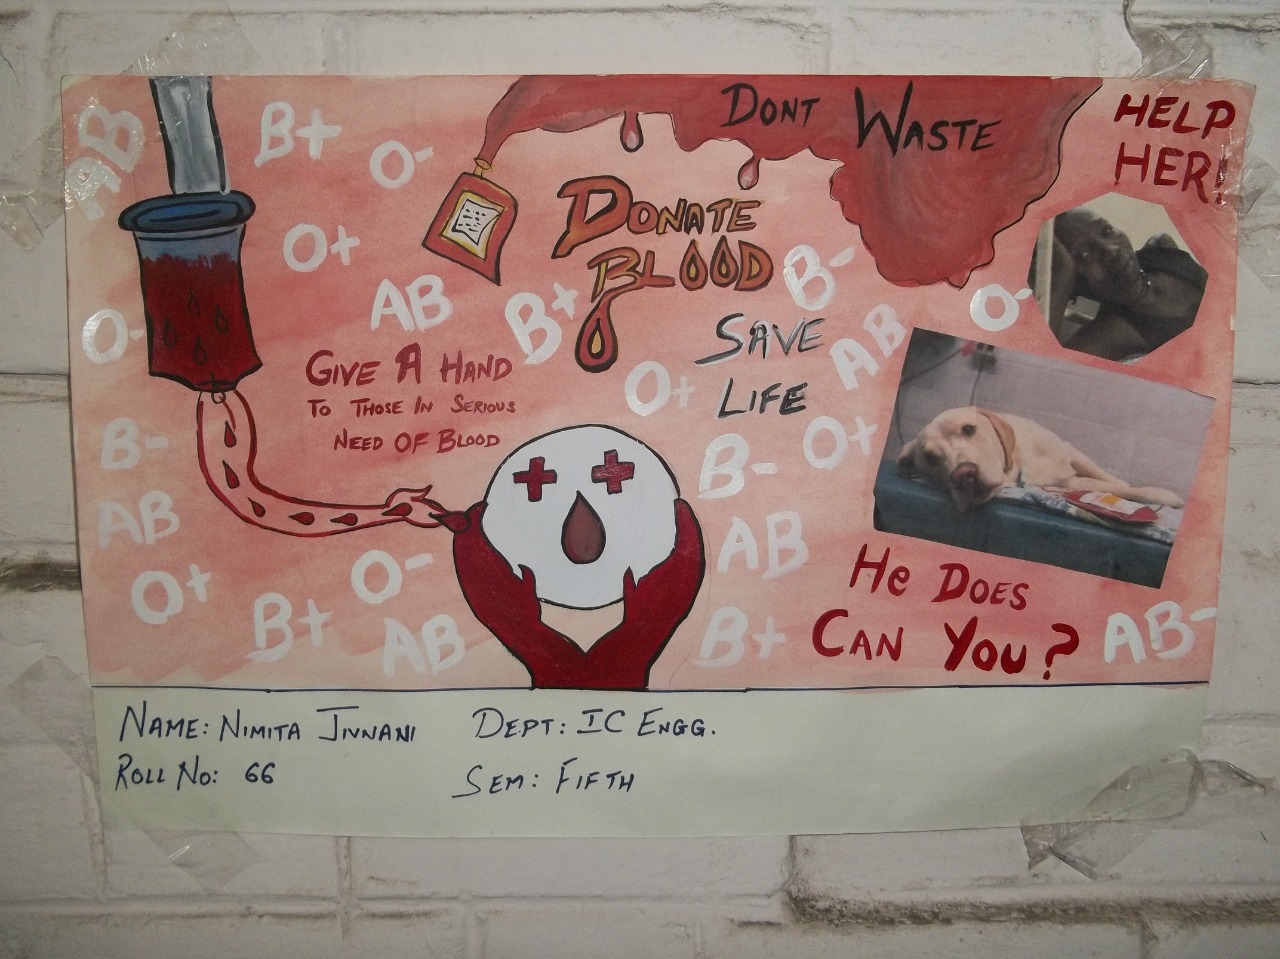 AB
B+
O-
DONT WASTE
HELP
HER!
DONATE
BLOOD
O+
AB
B+
B-
O-
O-
SAVE
LIFE
AB
GIVE A HAND
TO THOSE IN SERIOUS
NEED OF BLOOD
O+
B-
B-
O+
AB
AB
O+
O-
B+
AB
B+
HE DOES
CAN YOU?
AB-
NAME: NIMITA JIVNANI
DEPT: IC ENGG.
ROLL NO: 66
SEM: FIFTH